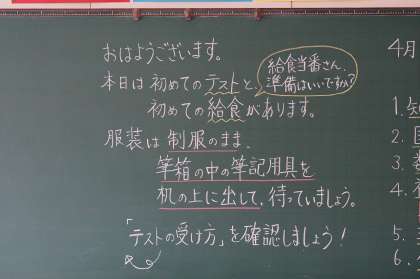 おはようございます。
本日は 初めての テストと、
給食当番さん、
準備はいいですか?
初めての 給食 があります。
服装は 制服のまま、
筆箱の中の筆記用具を
机の上に出して、待っていましょう。
「テストの受け方」を確認しましょう!
4月
1.
2.
3.
4.
5.
6.